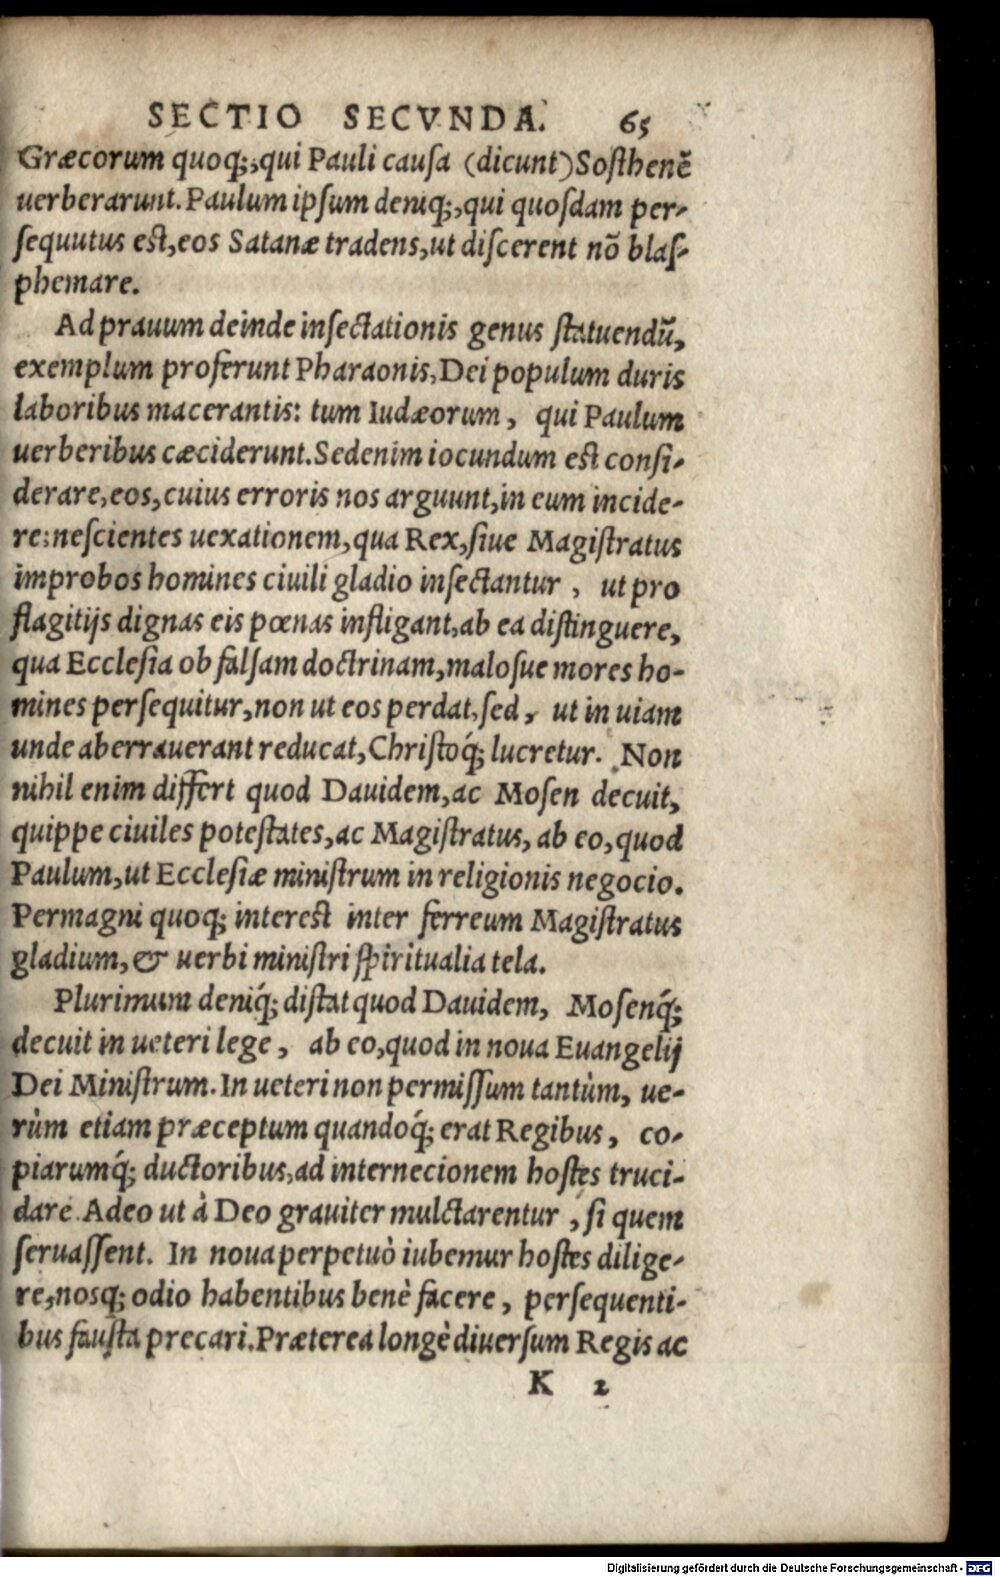 SECTIO SECVNDA. 65
Græcorum quoq;, qui Pauli cauſa (dicunt) Soſthenẽ
uerberarunt. Paulum ipſum deniq;, qui quoſdam per-
ſequutus eſt, eos Satanæ tradens, ut diſcerent nõ blaſ-
phemare.
Ad prauum deinde inſectationis genus ſtatuendũ,
exemplum proferunt Pharaonis, Dei populum duris
laboribus macerantis: tum Iudæorum, qui Paulum
uerberibus cæciderunt. Sedenim iocundum eſt conſi-
derare, eos, cuius erroris nos arguunt, in eum incide-
re: neſcientes uexationem, qua Rex, ſiue Magiſtratus
improbos homines ciuili gladio inſectantur, ut pro
flagitijs dignas eis pœnas infligant, ab ea diſtinguere,
qua Eccleſia ob falſam doctrinam, maloſue mores ho-
mines perſequitur, non ut eos perdat, ſed, ut in uiam
unde aberrauerant reducat, Chriſtoq́; lucretur. Non
nihil enim differt quod Dauidem, ac Moſen decuit,
quippe ciuiles poteſtates, ac Magiſtratus, ab eo, quod
Paulum, ut Eccleſiæ miniſtrum in religionis negocio.
Permagni quoq; intereſt inter ferreum Magiſtratus
gladium, & uerbi miniſtri ſpiritualia tela.
Plurimum deniq́; diſtat quod Dauidem, Moſenq́;
decuit in ueteri lege, ab eo, quod in noua Euangelij
Dei Miniſtrum. In ueteri non permiſſum tantùm, ue-
rùm etiam præceptum quandoq́; erat Regibus, co-
piarumq́; ductoribus, ad internecionem hoſtes truci-
dare. Adeo ut à Deo grauiter mulctarentur, ſi quem
ſeruaſſent. In noua perpetuò iubemur hoſtes dilige-
re, nosq; odio habentibus benè facere, perſequenti-
bus fauſta precari. Præterea longè diuerſum Regis ac
K 2
Digitalisierung gefördert durch die Deutsche Forschungsgemeinschaft - DFG